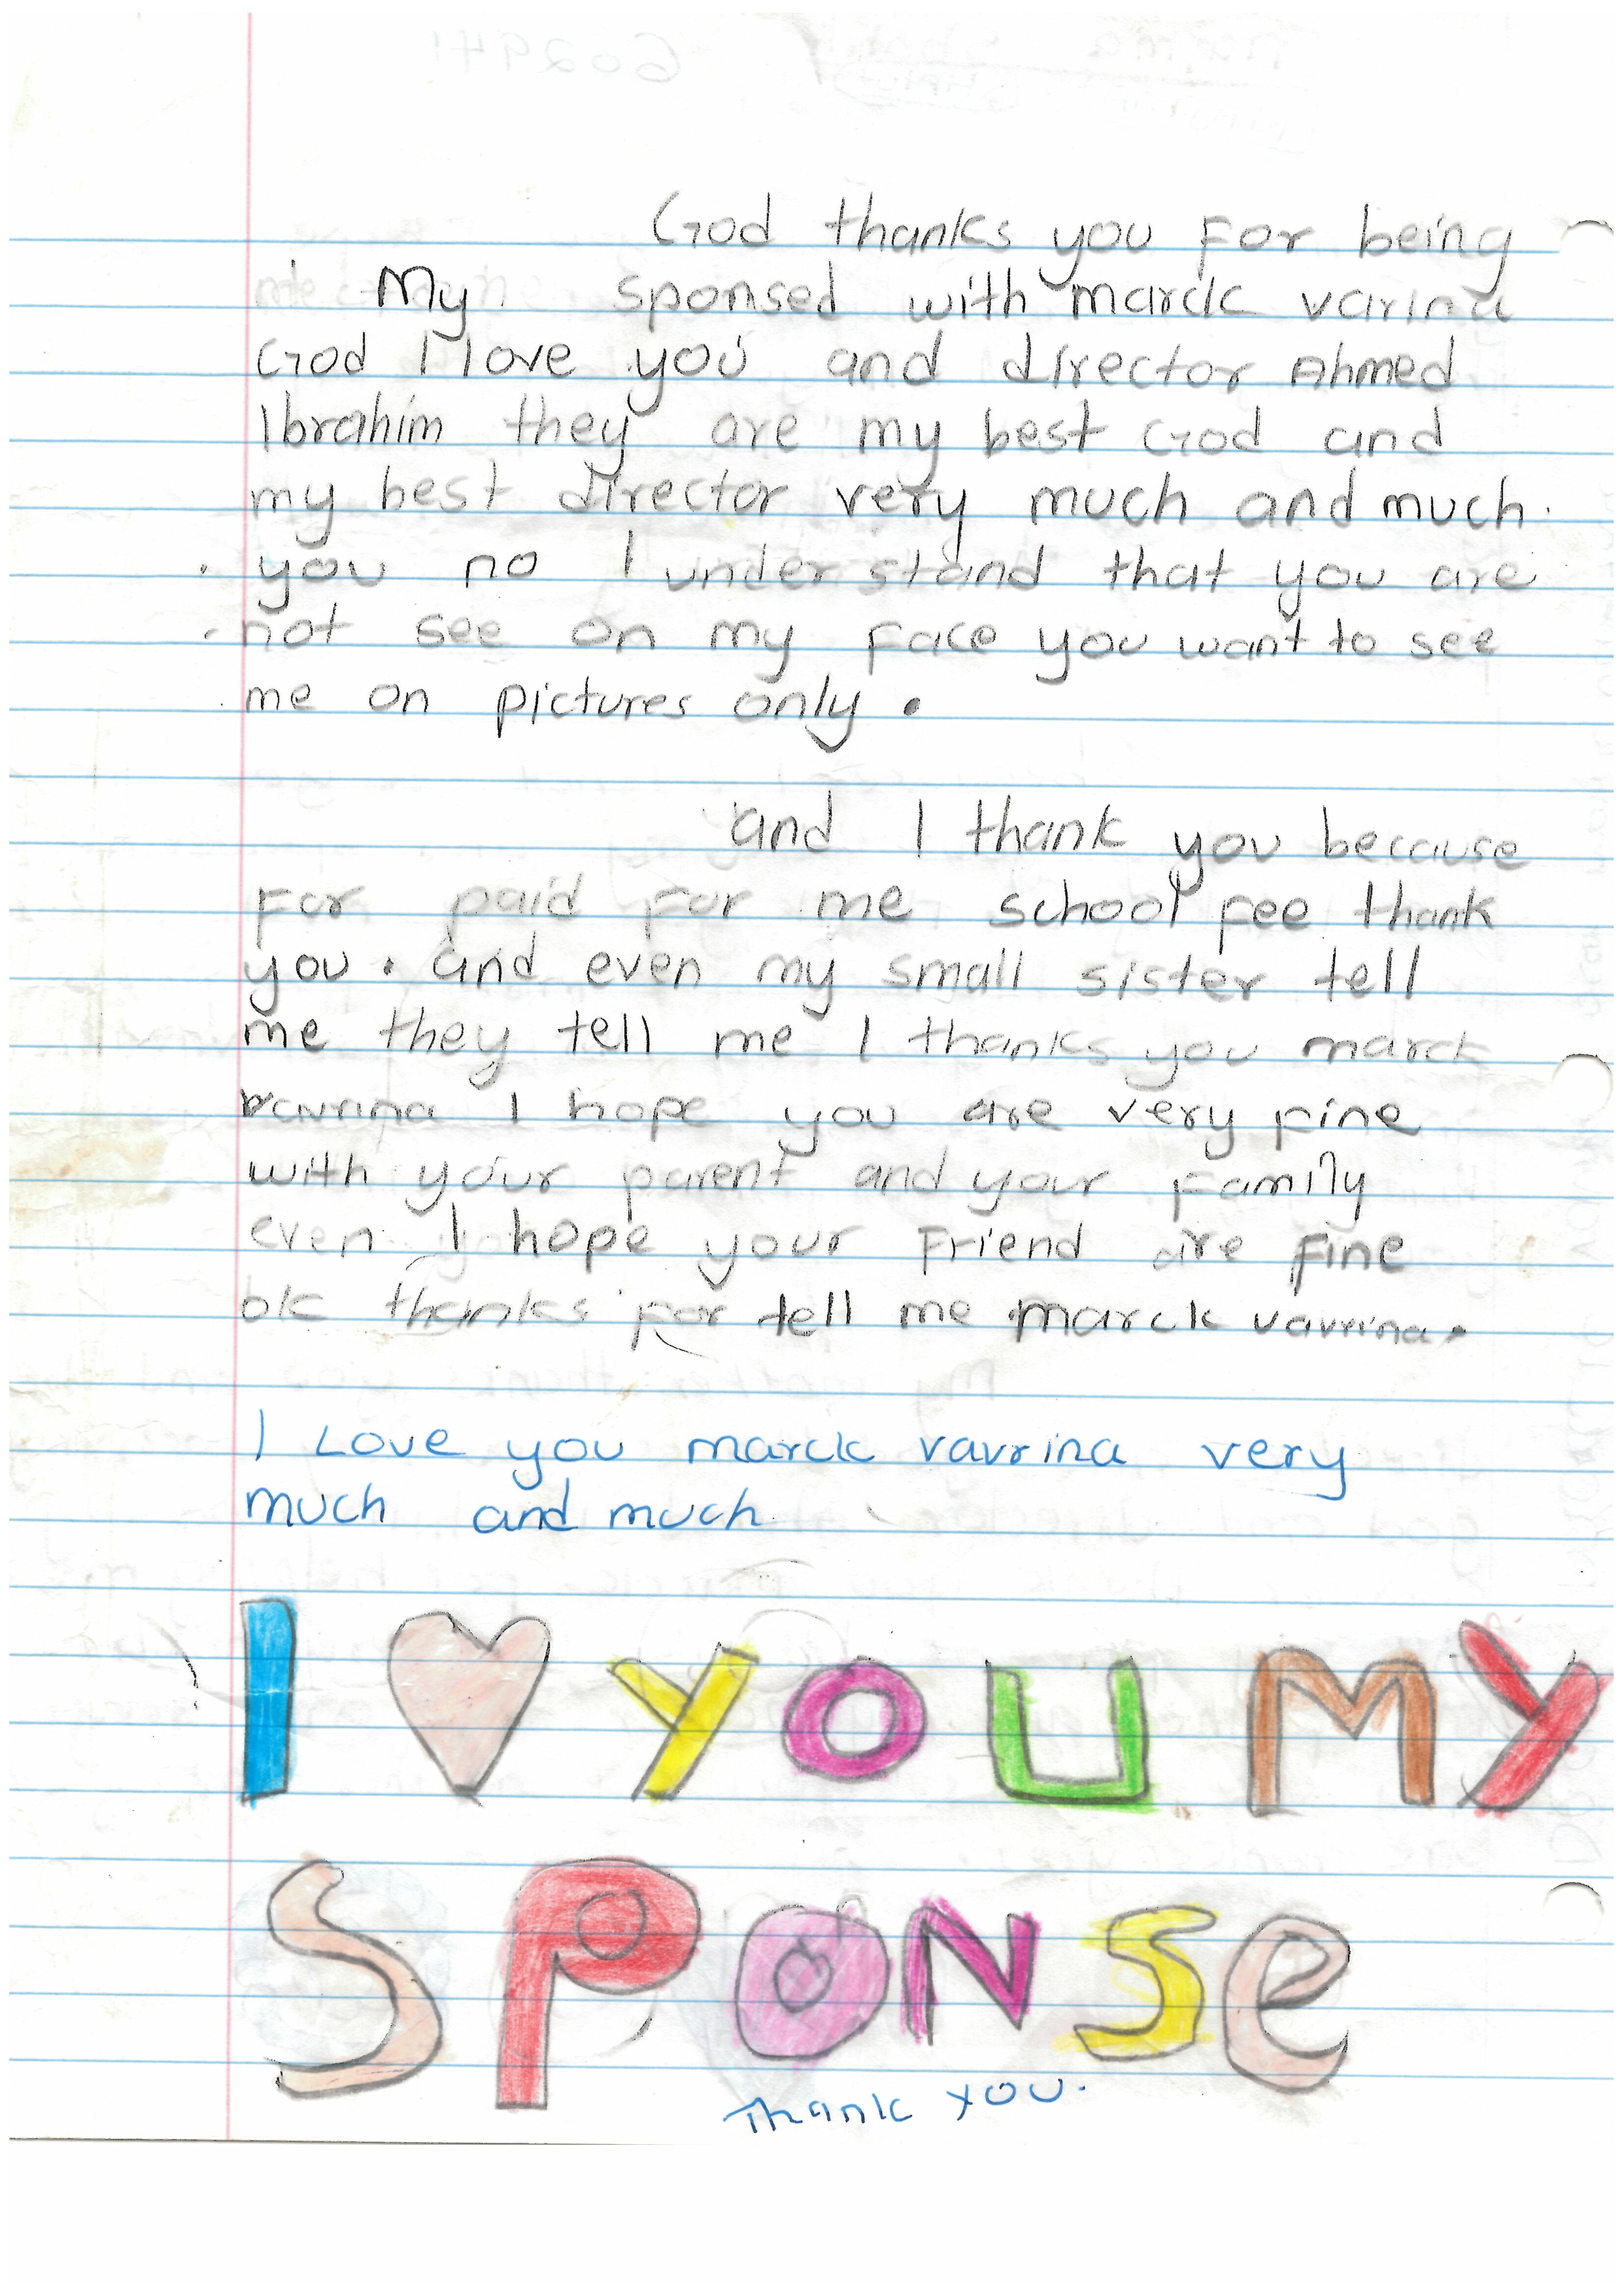 God thanks you For being
My sponsed with marck varina
God I love you and director Ahmed
Ibrahim they are my best God and
my best director very much and much.
you no I understand that you are
not see on my face you want to see
me on pictures only.
and I thank you because
For paid for me school fee thank
you. and even my small sister tell
me they tell me I thanks you marck
vavrina I hope you are very fine
with your parent and your Family
even I hope your Friend are fine
ok thanks for tell me marck vavrina.
I Love you marck vavrina very
much and much
I ♥ YOU MY
SPONSe
Thank YOU.